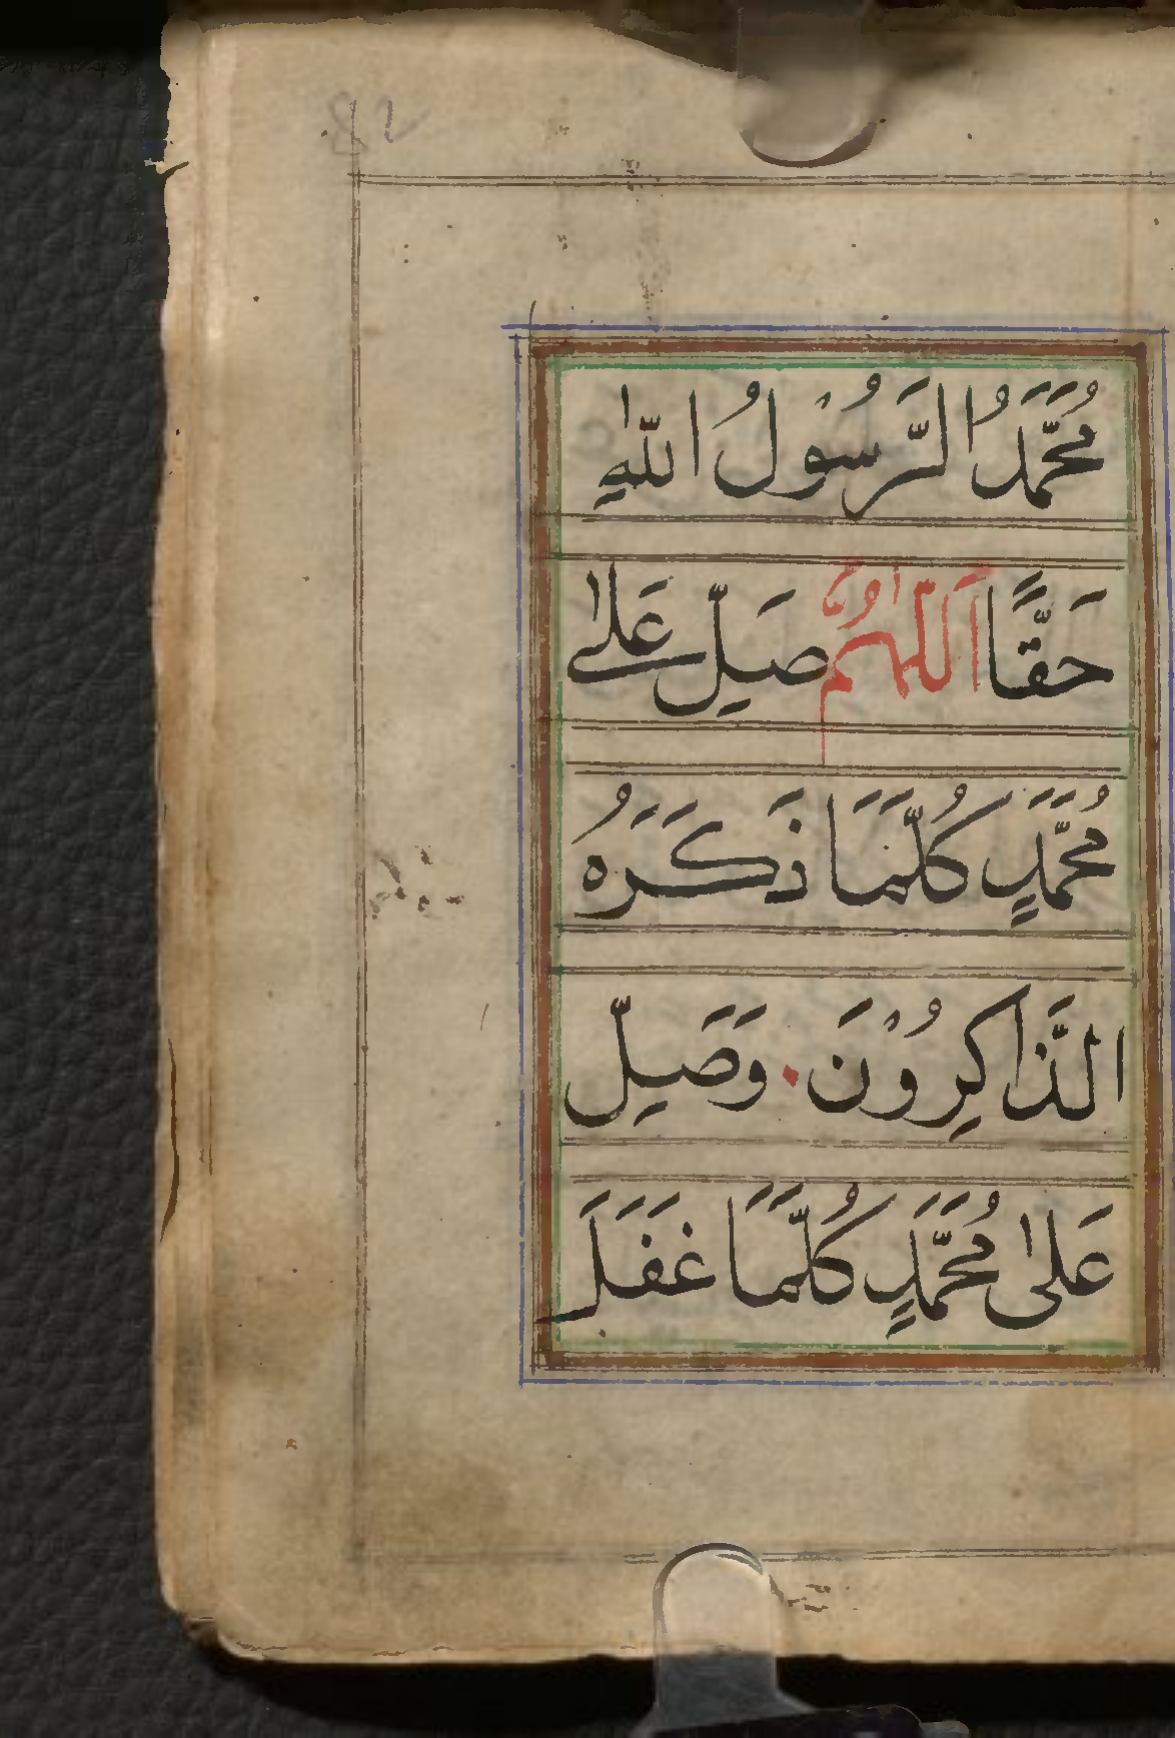 مُحَمَّدُ الرَّسُوْلُ اللّٰهِ
حَقًّا اَللّٰهُمَّ صَلِّ عَلٰى
مُحَمَّدٍ كُلَّمَا ذَكَرَهُ
الذَّاكِرُوْنَ. وَصَلِّ
عَلٰى مُحَمَّدٍ كُلَّمَا غَفَلَ